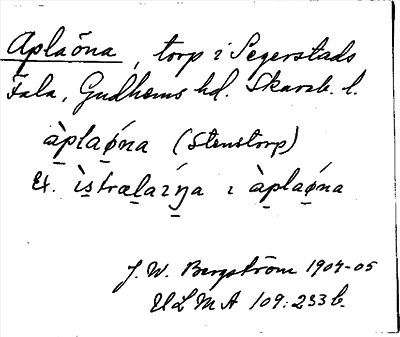 Aplaöna, torp i Segerstads
Fala, Gudhems hd. Skarab. l.
àplaǿna (Stenstorp)
Ex. ìstrælaíŋa ı àplaǿna
J. W. Bergström 1904-05
ULMA 109:233 b.